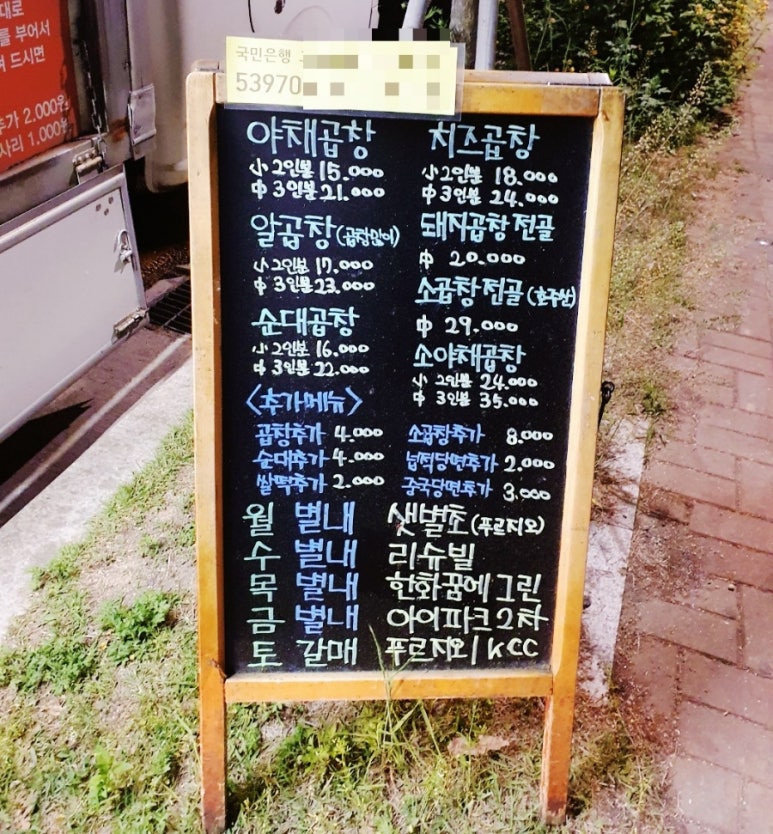 대로
를 부어서
드시면
추가 2.000원
사리 1.000원
국민은행
53970
야채곱창
小 2인분 15.000
中 3인분 21.000
알곱창 (곱창많이)
小 2인분 17.000
中 3인분 23.000
순대곱창
小 2인분 16.000
中 3인분 22.000
치즈곱창
小 2인분 18.000
中 3인분 24.000
돼지곱창전골
中 20.000
소곱창전골 (호주산)
中 29.000
소야채곱창
小 2인분 24.000
中 3인분 35.000
<추가메뉴>
곱창추가 4.000
순대추가 4.000
쌀떡추가 2.000
소곱창추가 8.000
넙적당면추가 2.000
중국당면추가 3.000
월 별내 샛별초 (푸르지오)
수 별내 리슈빌
목 별내 한화꿈에그린
금 별내 아이파크2차
토 갈매 푸르지오/KCC